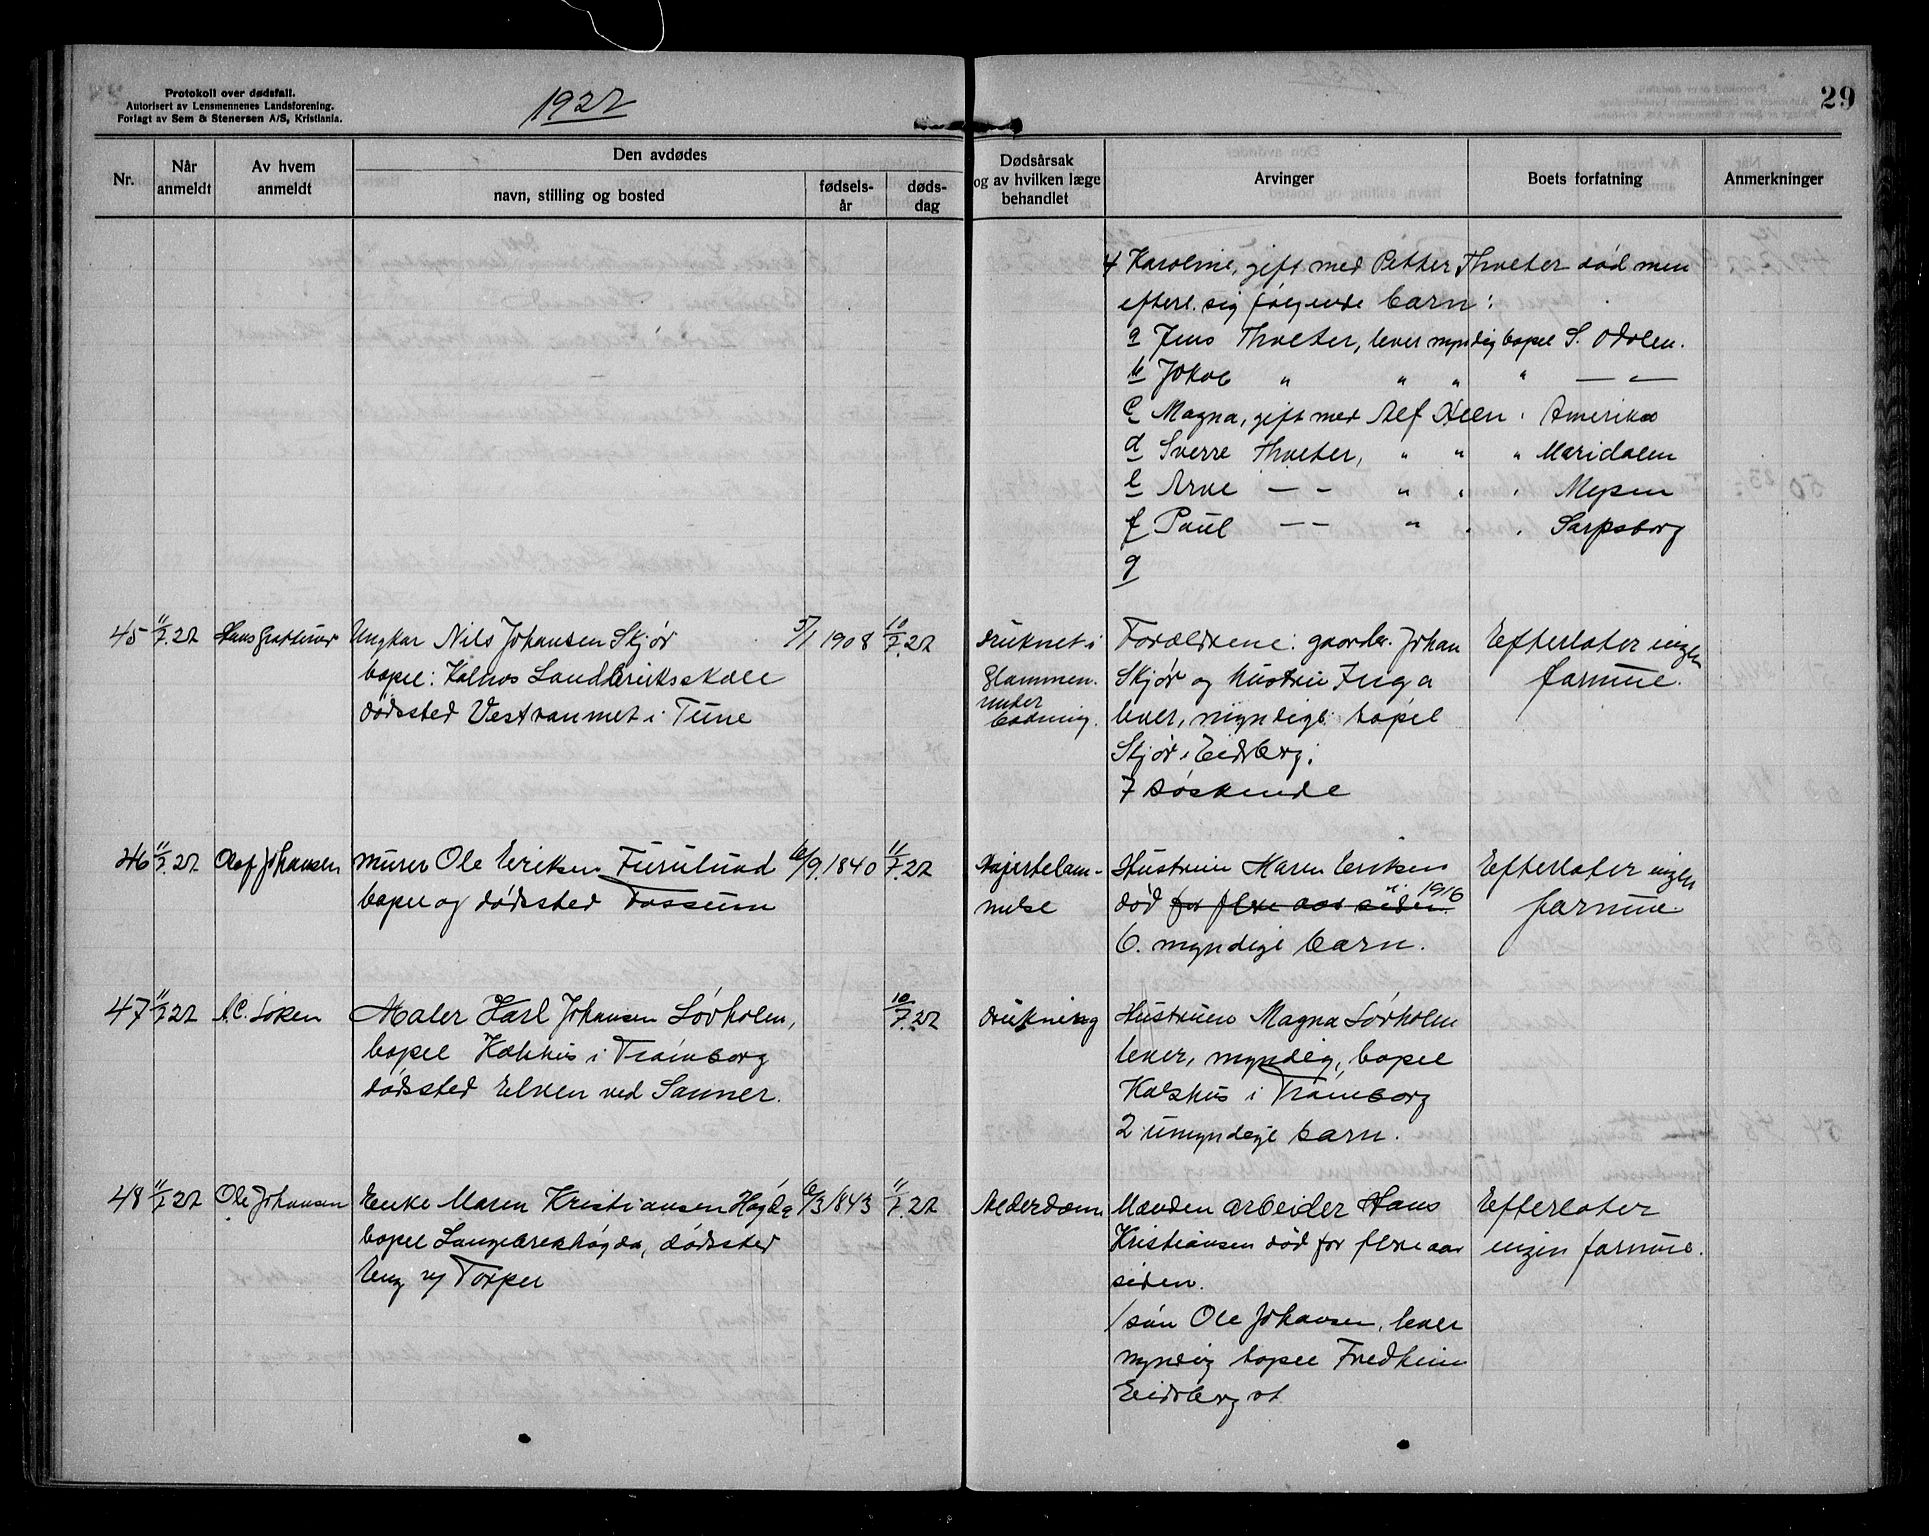 Protokoll over dødsfall.
Autorisert av Lensmennenes Landsforening.
Forlagt av Sem & Stenersen A/S, Kristiania.
1922
29
Nr.
Når anmeldt
Av hvem anmeldt
Den avdødes
navn, stilling og bosted
fødsels-år
døds-dag
Dødsårsak og av hvilken læge behandlet
Arvinger
Boets forfatning
Anmerkninger
4 Karoline, gift med Petter Thveter død men
efterl. sig følgende barn:
a Jens Thveter, lever myndig bopel S. Odalen.
b Jakob " " " " — " —
c Magna, gift med Alf Steen " Amerika
d Sverre Thveter, " " " Maridalen
e Arve — — " " " Mysen
f Paul — — " " " Sarpsborg
g
45 11/7.22 Hans Ungkar Nils Johansen Skjør 5/1 1908 10/7.22 druknet i Forældrene: gaardbr. Johan Efterlater ingen
bopel: Kalnes Landbruksskole Glommen. Skjør og hustru Inga formue.
dødssted Vestvannet i Tune under badning. lever, myndige bopel
Skjør i Eidsberg.
7 søskende
46 11/7.22 Olaf Johansen murer Ole Eriksen Furulund /9.1840 11/7.22 Hjertelam- Hustruen Maren Eriksen Efterlater ingen
bopel og dødssted Fossum melse død for flere aar siden. i 1916 formue.
6. myndige barn.
47 11/7 22 A.C. Løken Maler Karl Johansen Løvholm, 10/7.22 drukning Hustruen Magna Løvholm
bopel i Trømborg lever, myndig, bopel
dødssted Elven ved Sanner. i Trømborg
2 umyndige barn.
48 11/7.22 Ole Johansen Enke Maren Kristiansen Høgda /3 1843 11/7.22 Alderdom Manden arbeider Hans Efterlater
bopel Langbrekhøgda, dødssted Kristiansen død for flere aar ingen formue.
Eng u/ Torper siden.
1 søn Ole Johansen, lever
myndig bopel Fredheim
Eidsberg st